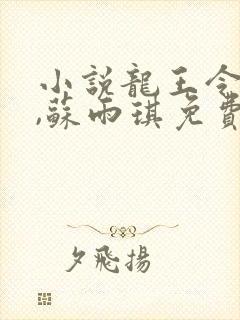 小説龍王令
,蘇雨琪免費
夕飛揚